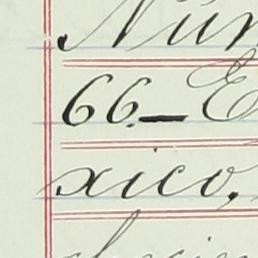 Nún
66_ E
xico,